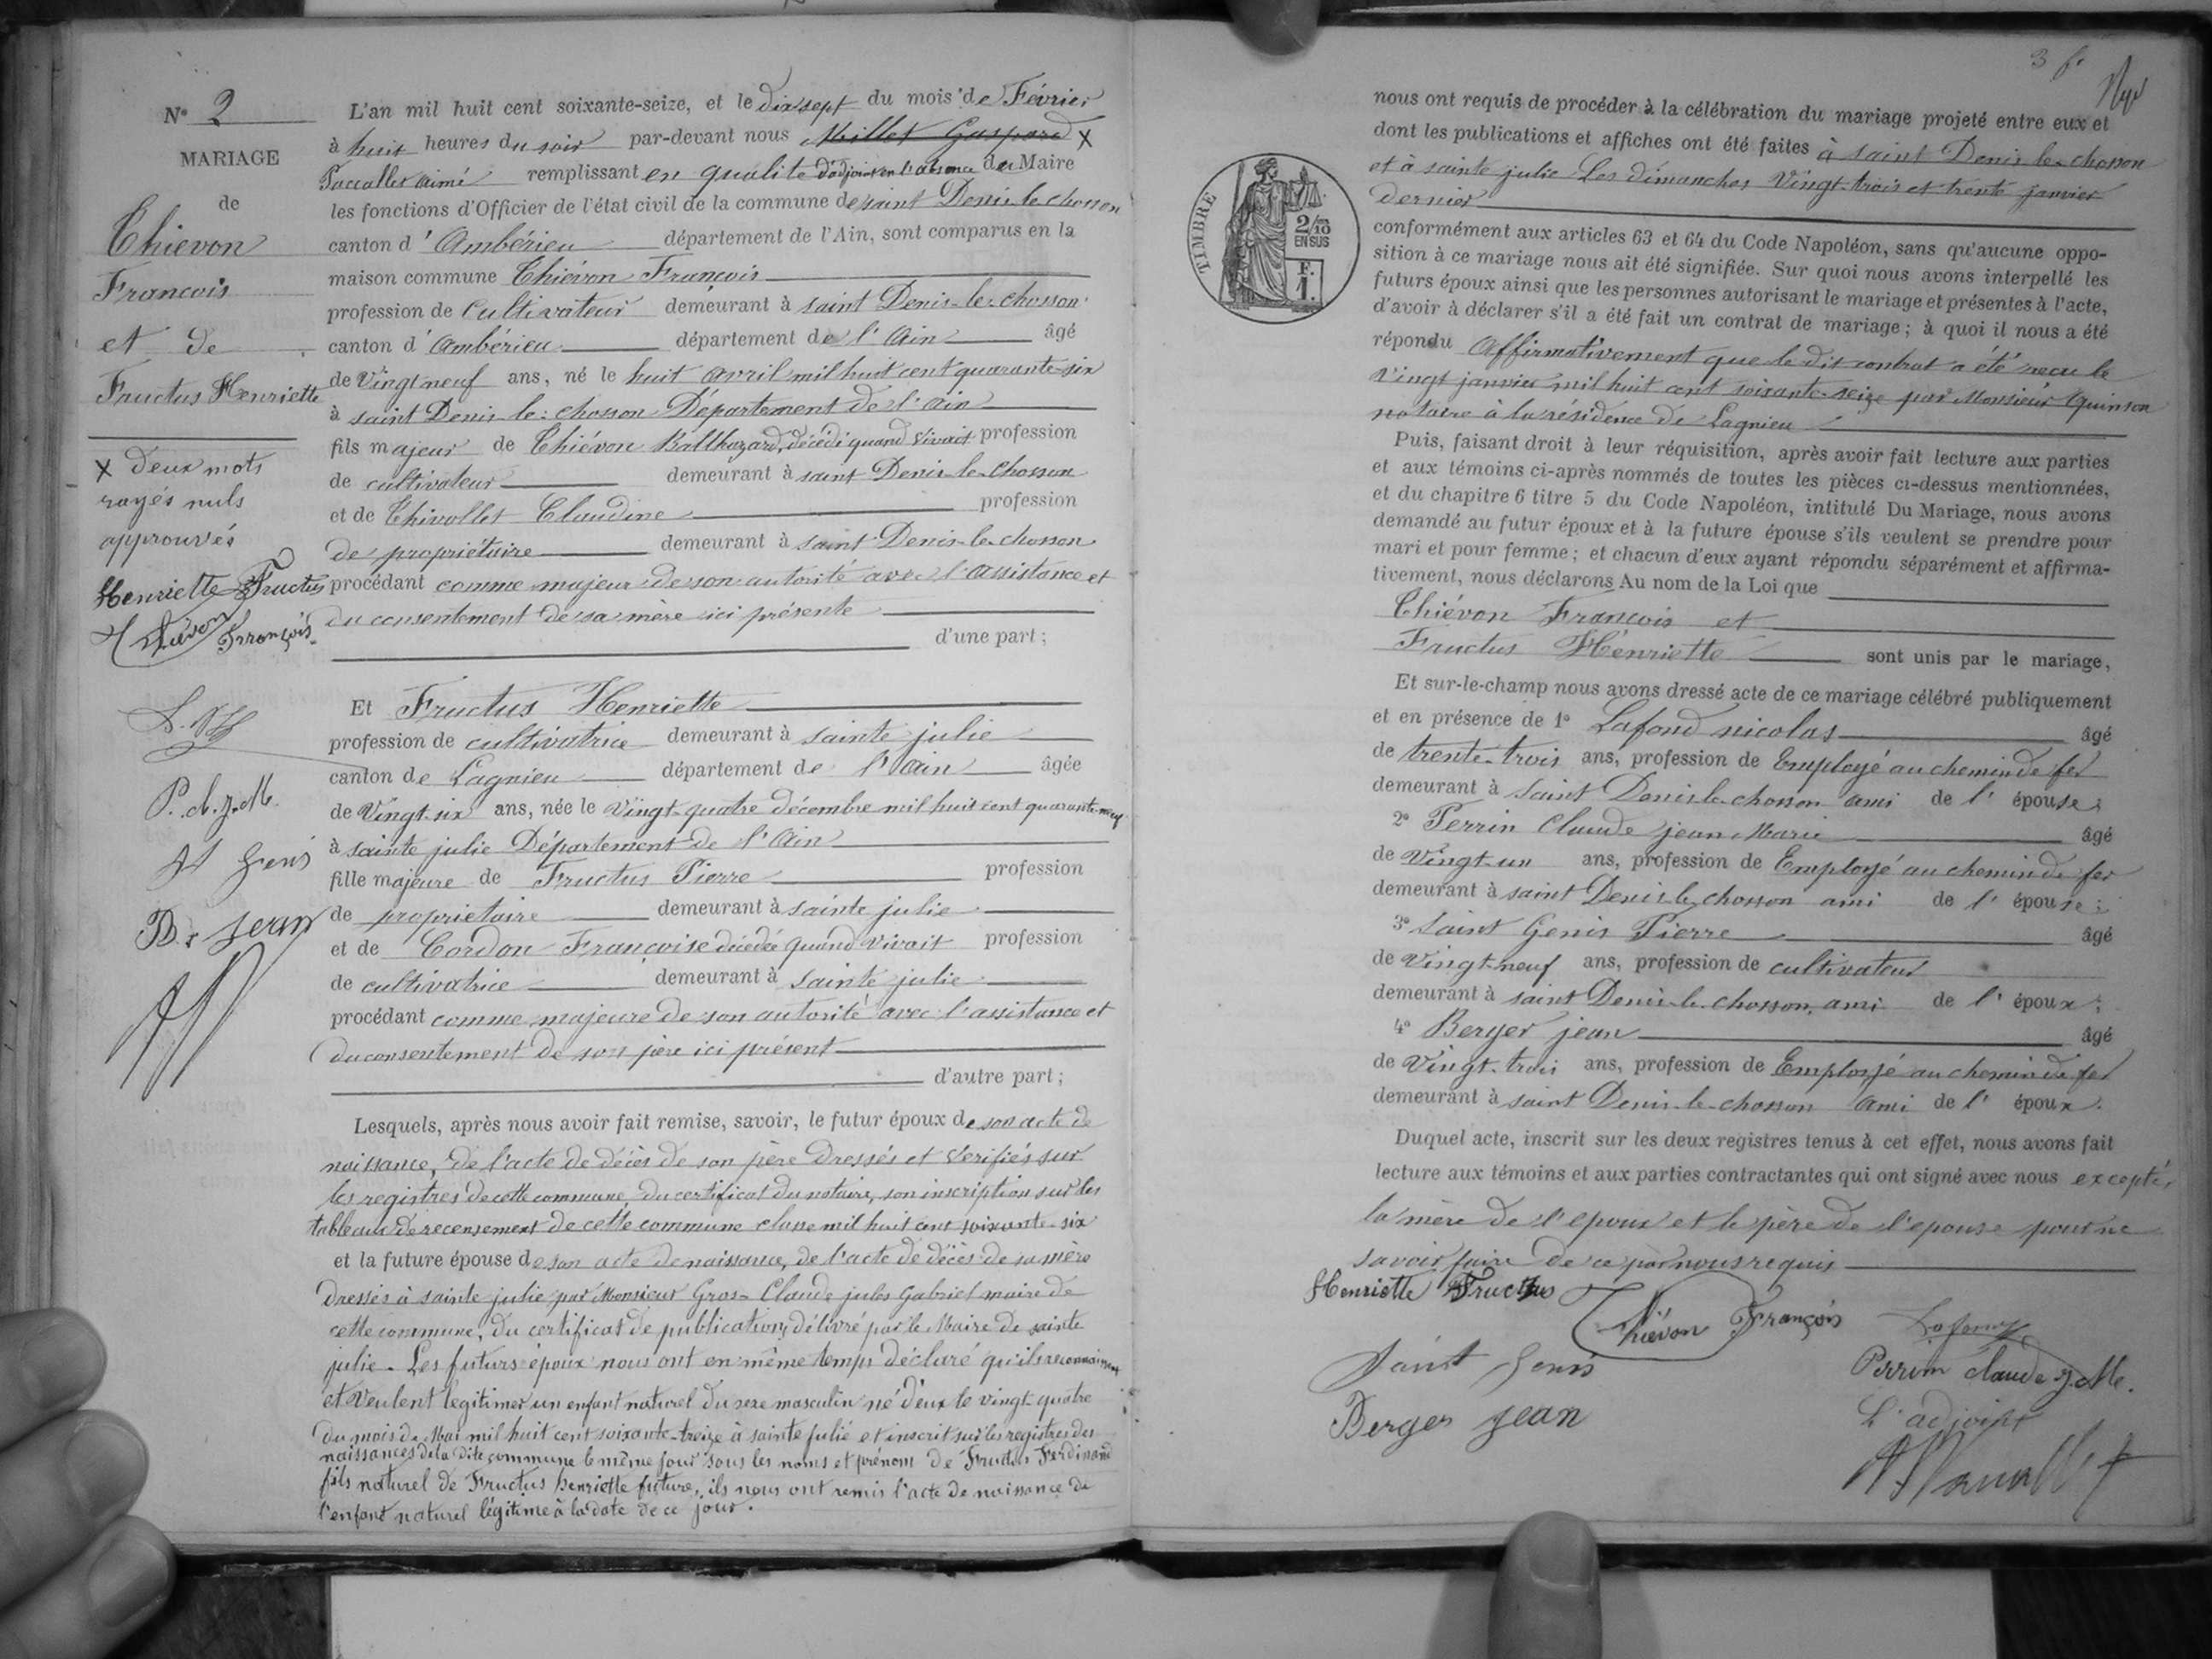 N° 2
MARIAGE
de
Thievon
Francois
et de
Fructus Henriette
X deux mots
rayés nuls
approuvés
Henriette Fructus
Thiévon François
P. C. J. M.
St Genis
B. r Jean
L'an mil huit cent soixante-seize, et le dix sept du mois de Février
à huit heures du soir par-devant nous Millet Gaspard X
Paccallet aimé remplissant en qualité d'adjoint en l'absence du Maire
les fonctions d'Officier de l'état civil de la commune de saint Denis-le chosson
canton d'Ambérieu département de l'Ain, sont comparus en la
maison commune Thiévon Francois
profession de cultivateur demeurant à saint Denis-le-chosson
canton d'Ambérieu département de l'Ain âgé
de Vingt neuf ans, né le huit avril mil huit cent quarante-six
à saint Denis-le-chosson Département de l'ain
fils majeur de Thiévon Balthazard, décédé quand vivait profession
de cultivateur demeurant à saint Denis-le-chosson
et de Thivollet Claudine profession
de propriétaire demeurant à saint Denis-le-chosson
procédant comme majeur de son autorité avec l'assistance et
du consentement de sa mère ici présente
d'une part;
Et Fructus Henriette
profession de cultivatrice demeurant à sainte julie
canton de Lagnieu département de l'ain âgée
de Vingt-six ans, née le Vingt-quatre décembre mil huit cent quarante-neuf
à sainte julie Département de l'Ain
fille majeure de Fructus Pierre profession
de propriétaire demeurant à sainte julie
et de Cordon Francoise décédée quand vivait profession
de cultivatrice demeurant à sainte julie
procédant comme majeure de son autorité avec l'assistance et
du consentement de son père ici présent
d'autre part;
Lesquels, après nous avoir fait remise, savoir, le futur époux de son acte de
naissance, de l'acte de décès de son père dressés et vérifiés sur
les registres de cette commune, du certificat du notaire, son inscription sur les
tableaux de recensement de cette commune classe mil huit cent soixante-six
et la future épouse de son acte de naissance, de l'acte de décès de sa mère
dressés à sainte julie par Monsieur Gros-Claude jules Gabriel maire de
cette commune, du certificat de publication, délivré par le Maire de sainte
julie. Les futurs époux nous ont en même temps déclaré qu'ils reconnaissent
et veulent légitimer un enfant naturel du sexe masculin né d'eux le vingt-quatre
du mois de Mai mil huit cent soixante-treize à sainte julie et inscrit sur les registres des
naissances de la dite commune le même jour sous les noms et prénom de Fructus Ferdinand
fils naturel de Fructus Henriette future, ils nous ont remis l'acte de naissance de
l'enfant naturel légitimé à la date de ce jour.
3 f.
TIMBRE
2/10
EN SUS
F.
1.
nous ont requis de procéder à la célébration du mariage projeté entre eux et
dont les publications et affiches ont été faites à saint Denis le-chosson
et à sainte julie Les dimanches Vingt-trois et trente janvier
dernier
conformément aux articles 63 et 64 du Code Napoléon, sans qu'aucune oppo-
sition à ce mariage nous ait été signifiée. Sur quoi nous avons interpellé les
futurs époux ainsi que les personnes autorisant le mariage et présentes à l'acte,
d'avoir à déclarer s'il a été fait un contrat de mariage; à quoi il nous a été
répondu Affirmativement que le dit contrat a été recu le
vingt janvier mil huit cent soixante-seize par Monsieur Quinson
notaire à la résidence de Lagnieu
Puis, faisant droit à leur réquisition, après avoir fait lecture aux parties
et aux témoins ci-après nommés de toutes les pièces ci-dessus mentionnées,
et du chapitre 6 titre 5 du Code Napoléon, intitulé Du Mariage, nous avons
demandé au futur époux et à la future épouse s'ils veulent se prendre pour
mari et pour femme; et chacun d'eux ayant répondu séparément et affirma-
tivement, nous déclarons Au nom de la Loi que
Thiévon Francois et
Fructus Henriette sont unis par le mariage,
Et sur-le-champ nous avons dressé acte de ce mariage célébré publiquement
et en présence de 1° Lafond nicolas âgé
de trente-trois ans, profession de Employé au chemin de fer
demeurant à saint Denis le-chosson ami de l'épouse;
2° Perrin Claude jean Marie âgé
de Vingt-un ans, profession de Employé au chemin de fer
demeurant à saint Denis le-chosson ami de l'épouse;
3° Saint Genis Pierre âgé
de Vingt-neuf ans, profession de cultivateur
demeurant à saint Denis-le-chosson, ami de l'époux;
4° Berger jean âgé
de Vingt-trois ans, profession de Employé au chemin de fer
demeurant à saint Denis-le-chosson ami de l'époux.
Duquel acte, inscrit sur les deux registres tenus à cet effet, nous avons fait
lecture aux témoins et aux parties contractantes qui ont signé avec nous excepté,
la mère de l'époux et le père de l'épouse pour ne
savoir faire de ce par nous requis
Henriette Fructus Thiévon François Lafond
Saint Genis Perrin Claude J. M.
Berger Jean L'adjoint